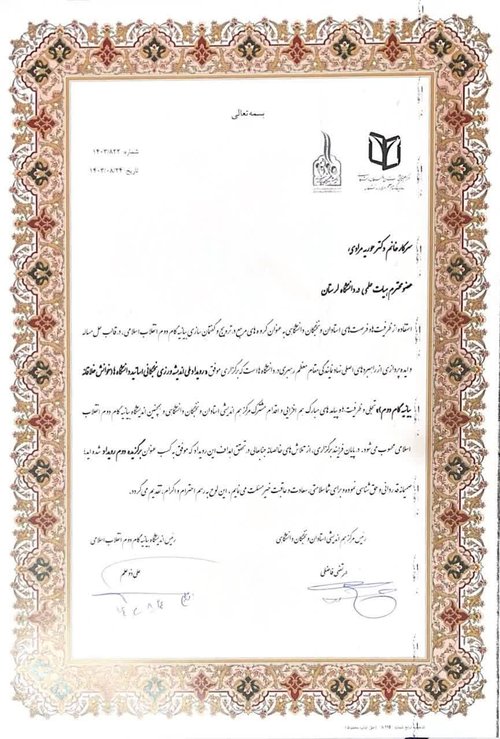 بسمه تعالی
شماره: ۱۴۰۳/۸۲۲
تاریخ: ۱۴۰۳/۰۸/۲۴
سرکار خانم دکتر حوریه مرادی؛
عضو محترم هیات علمی در دانشگاه لرستان
استفاده از ظرفیت ها و فرصت های استادان و نخبگان دانشگاهی به عنوان گروه های مرجع و ترویج و گفتمان سازی بیانیه گام دوم انقلاب اسلامی، در قالب حل مساله
و ایده پردازی از راهبردهای اصلی نهاد نمایندگی مقام معظم رهبری در دانشگاه ها است که برگزاری موفق «رویداد ملی اندیشه ورزی نخبگانی اساتید دانشگاه ها؛ خوانش خلاقانه
بیانیه گام دوم» تجلی و ظرفیت ها و پیامدهای مبارک هم افزایی و اقدام مشترک مرکز هم اندیشی استادان و نخبگان دانشگاهی و همچنین اندیشگاه بیانیه گام دوم انقلاب
اسلامی محسوب می شود. در پایان فرایند برگزاری، از تلاش های خالصانه جنابعالی در تحقق اهداف این رویداد که موفق به کسب عنوان برگزیده دوم رویداد شده اید؛
صمیمانه قدردانی و حق شناسی نموده و برای شما سلامتی، سعادت و عاقبت خیر مسئلت می نمایم. این لوح به رسم احترام و اکرام، تقدیم می گردد.
رئیس مرکز هم اندیشی استادان و نخبگان دانشگاهی
رئیس اندیشگاه بیانیه گام دوم انقلاب اسلامی
مرتضی فاضلی